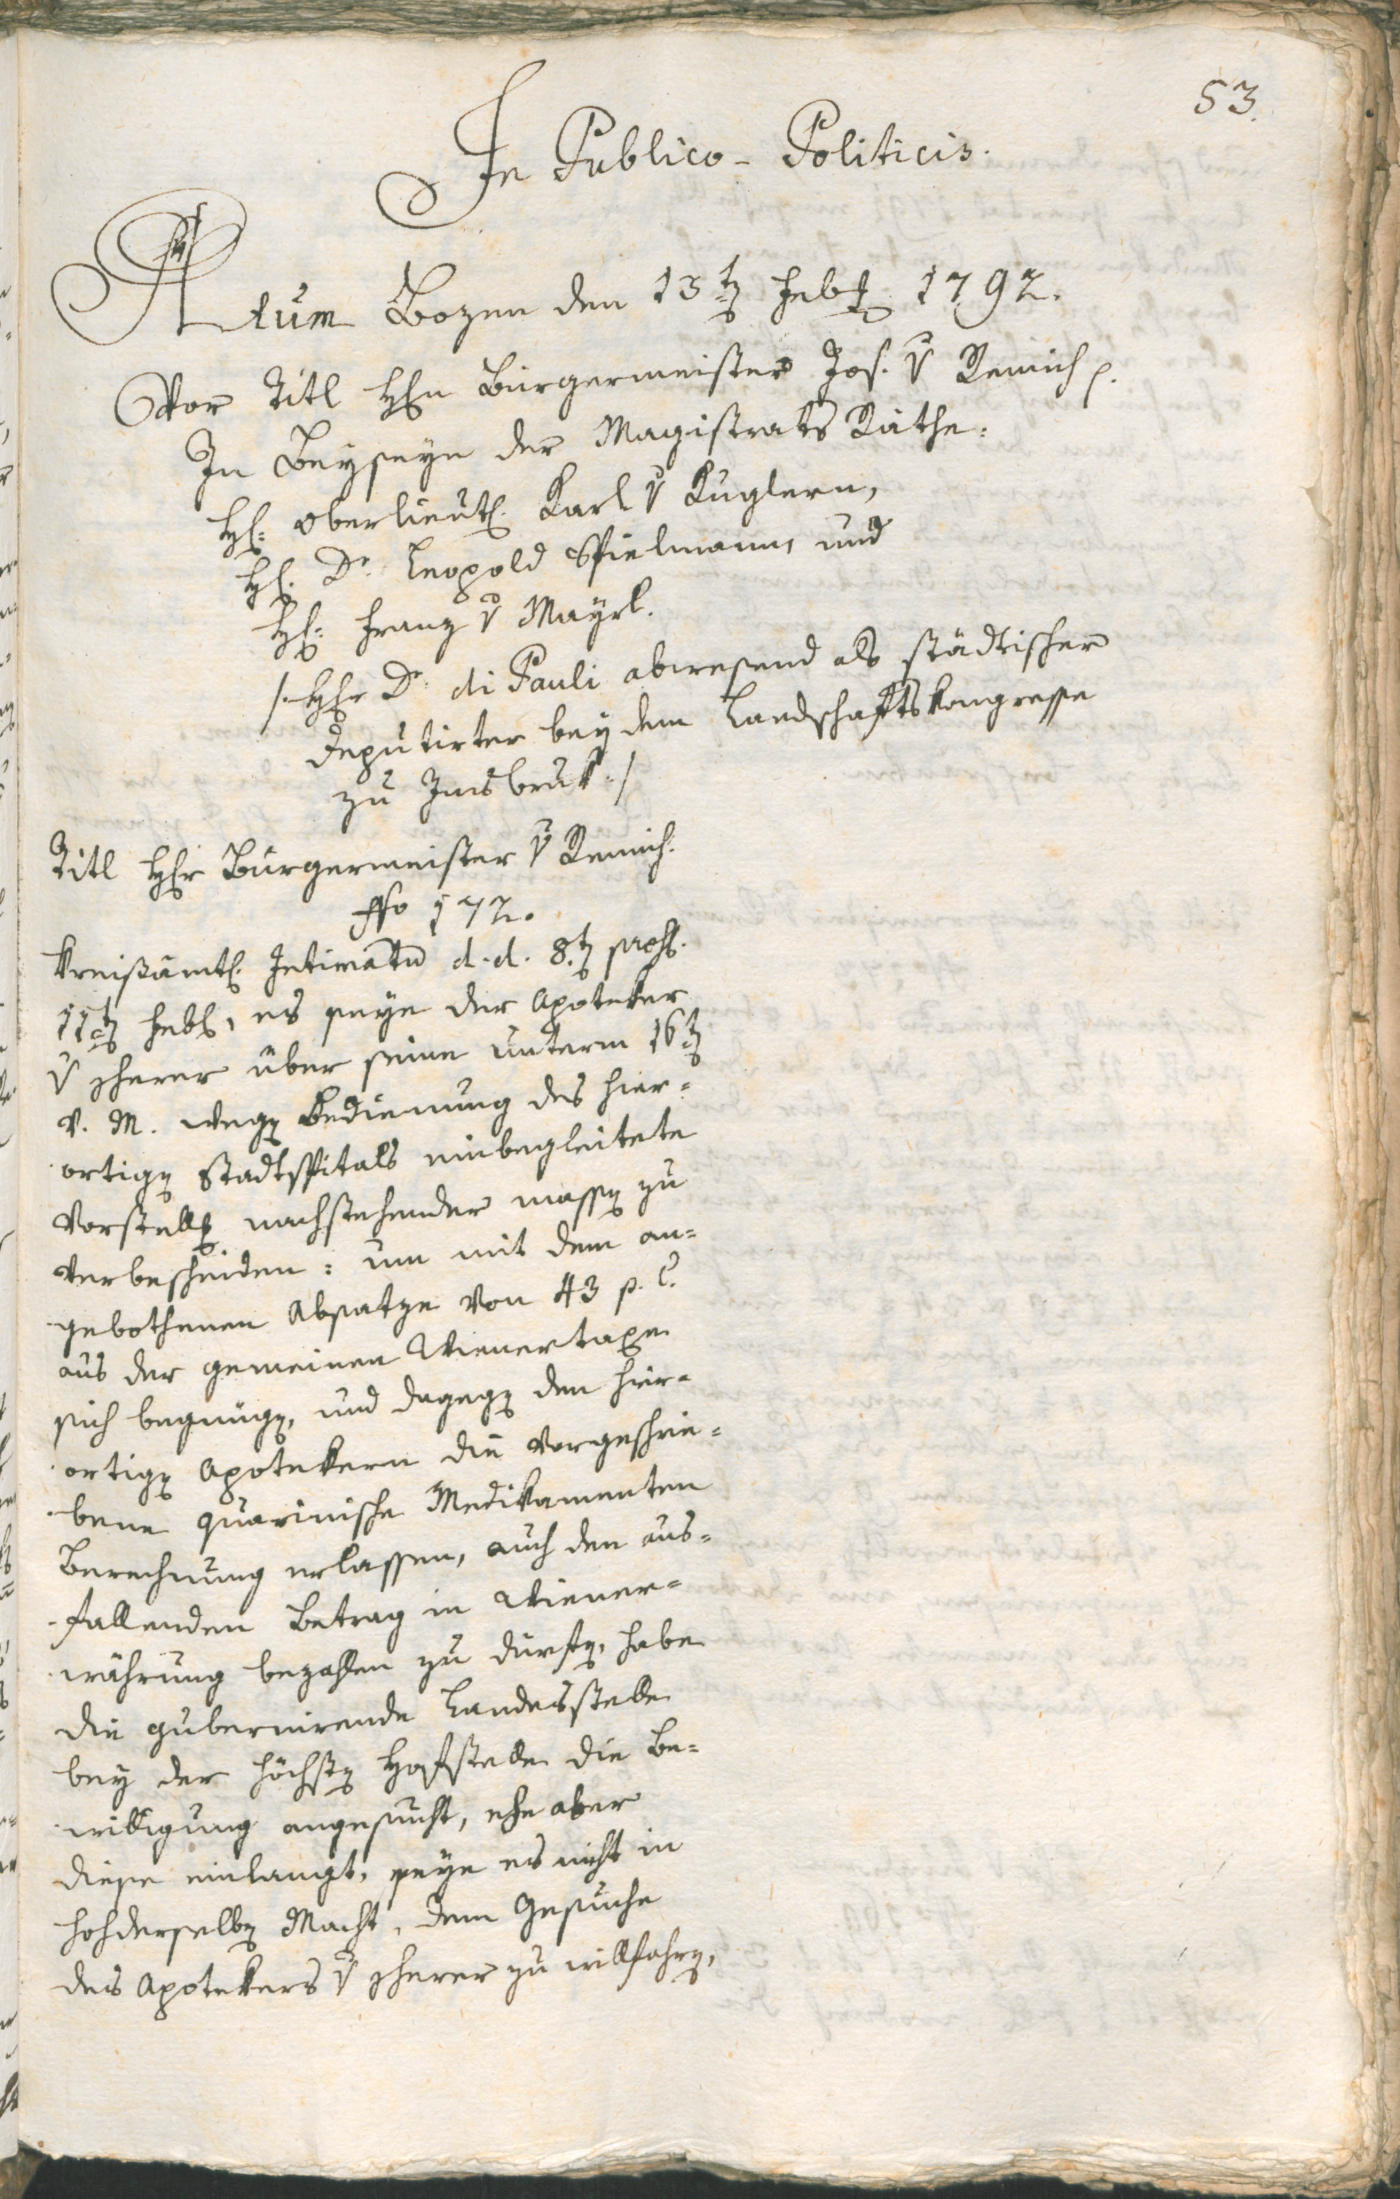 53.
In Publico-Politicis.
Actum Bozen den 13t Feb 1792.
Vor Titl Hhn Bürgermeister Jos. v Remich p.
In Beyseyn der Magistrats Räthe:
H: Oberlieut. Karl v Kuglern,
H. Dr. Leopold Spielmann, und
H: Franz v Mayrl.
/: Hhr Dr. di Pauli abwesend als städtischer
Deputirter bey dem Landschaftskongresse
zu Innsbruk :/
Titl Hhr Bürgermeister v Remich.
172.
Kreißämtl. Intimatn d. d. 8t
11t Feb, es seye der Apoteker
v über seine unterm 16t
v. M. wegen Bedienung des hier=
ortigen Stadtspitals einbegleitete
Vorstellg nachstehender massen zu
verbescheiden: um mit dem an=
gebothenen Absatze von 43 p. C.
aus der gemeinen Wienertaxe
sich begnügen, und dagegen den hier=
ortigen Apotekern die vorgeschrie=
bene quarinische Medikamenten
Berechnung erlassen, auch den aus=
fallenden Betrag in Wiener=
währung bezahlen zu dürfen, habe
die gubernirende Landesstelle
bey der höchsten Hofstelle die Be=
willigung angesucht, ehe aber
diese einlangt, seye es nicht in
hochderselben Macht, dem Gesuche
des Apotekers v zu willfahren,